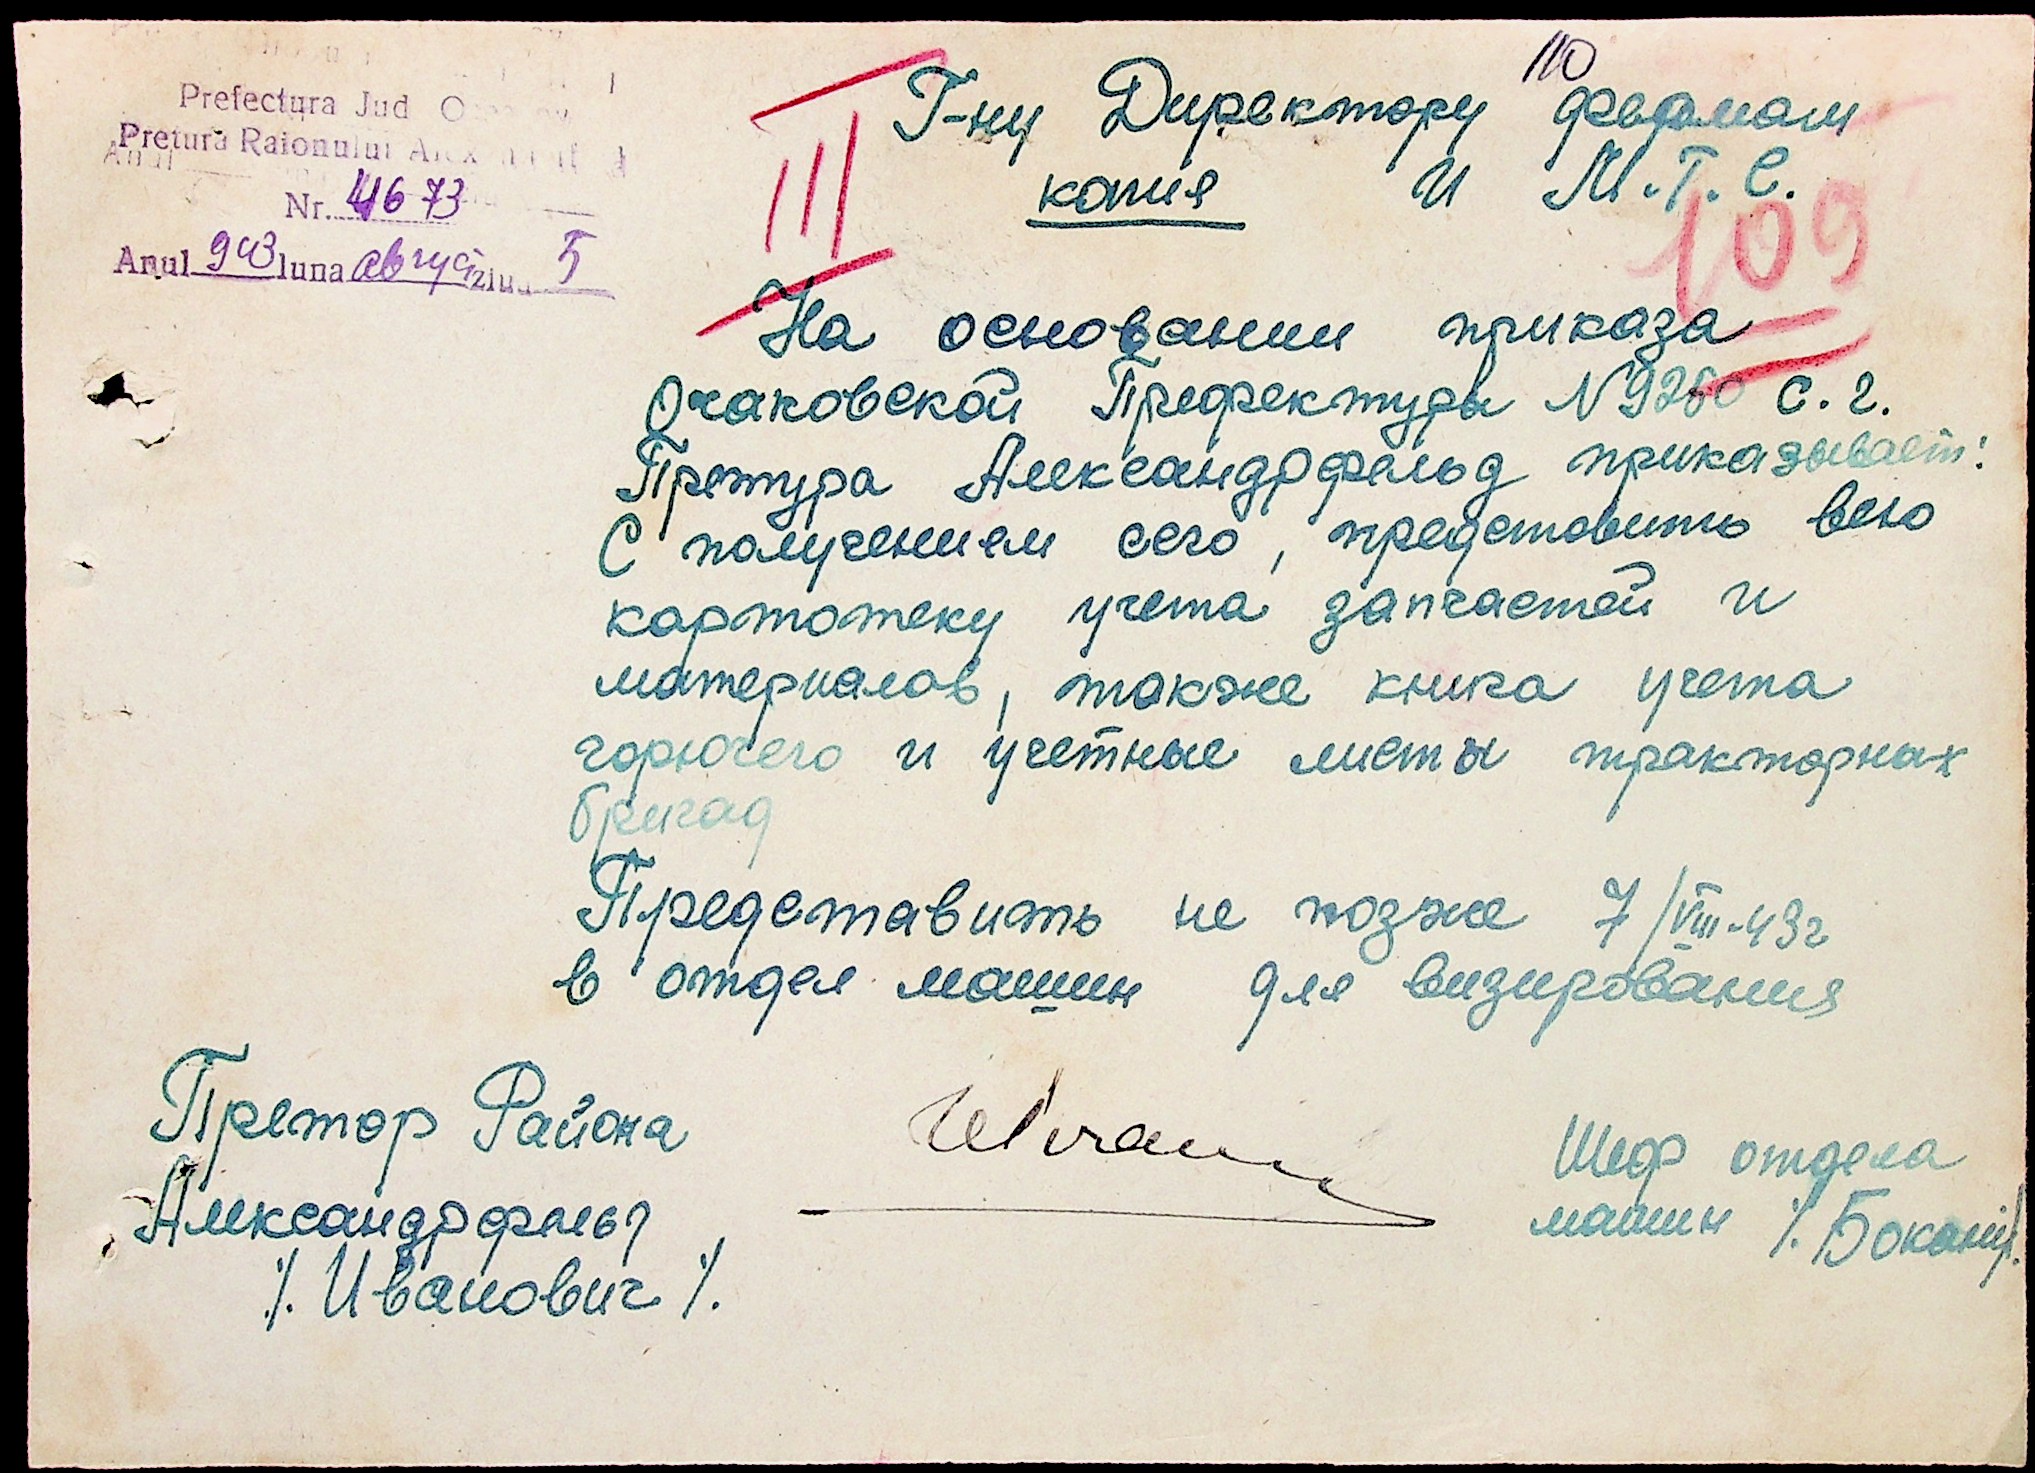 110
Prefectura Jud
Pretura Raionului
Anul
Nr. 41673
Anul 943 luna август ziua 5
III
Г-ну Директору фермам
копия И М.Т.С.
109
На основании приказа
Очаковской Префектуры N 9260 с.г.
Претура Александрфельд приказывает:
С получением сего, представить всю
картотеку учета запчастей и
материалов, также книга учета
горючего и учетные листы тракторных
бригад
Представить не позже 7/VIII-43г
в отдел машин для визирования
Претор Района
Александрфельд
/. Иванович /.
Шеф отдела
машин /.